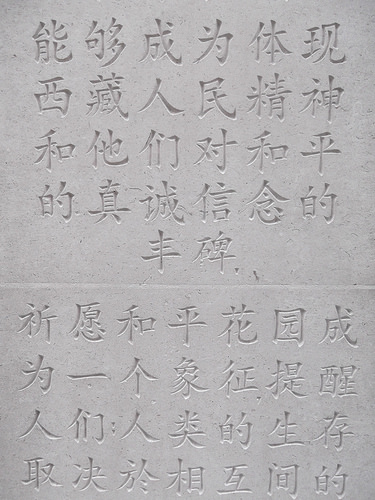 能够成为体现
西藏人民精神
和他们对和平
的真诚信念的
丰碑
祈愿和平花园成
为一个象征提醒
人们;人类的生存
取决於相互间的